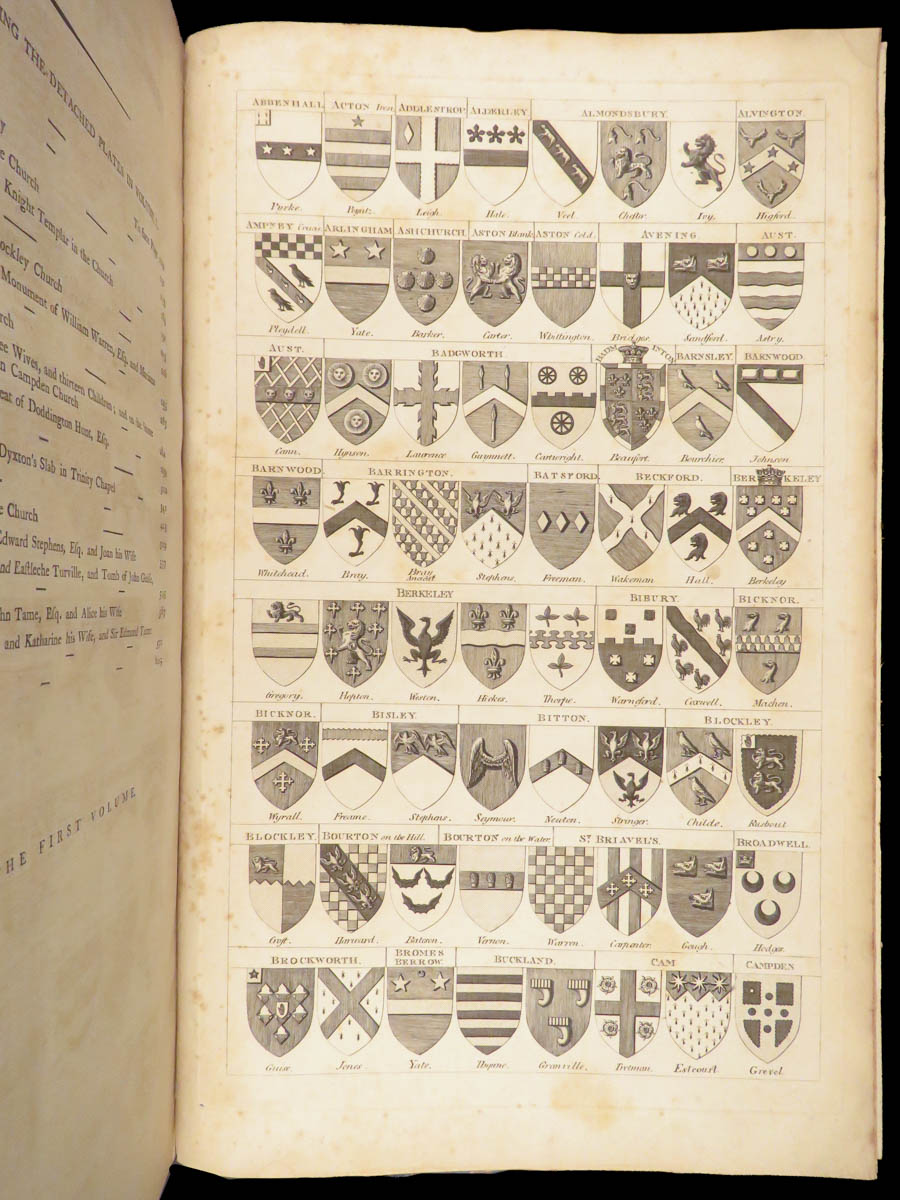 ING THE DETACHED PLATES IN VOLUME I.
To face Page
e Church
Knight Templar in the Church
ockley Church
Monument of William Warren, Esq. and Marianne
rch
ee Wives, and thirteen Children; and on the
n Campden Church
eat of Doddington Hunt, Esq.
Dyxton's Slab in Trinity Chapel
e Church
Edward Stephens, Esq. and Joan his Wife
and Eastleche Turville, and Tomb of John Guise,
hn Tame, Esq. and Alice his Wife
and Katharine his Wife, and Sir Edmund Tame
HE FIRST VOLUME.
ABBENHALL ACTON Iron. ADDLESTROP ALDERLEY ALMONDSBURY ALVINGTON.
Purke. Poyntz. Leigh. Hale. Veel. Chester. Ivy. Higford.
AMPNEY Crucis. ARLINGHAM ASHCHURCH. ASTON Blank. ASTON Cold. AVENING AUST.
Pleydell. Yate. Barker. Carter. Whittington. Bridges. Sandford. Astry.
AUST. BADGWORTH. BADMINTON BARNSLEY. BARNWOOD.
Cann. Hynson. Laurence Gwynnett. Cartwright. Beaufort. Bourchier. Johnson
BARNWOOD. BARRINGTON. BATSFORD BECKFORD. BERKELEY
Whitehead. Bray. Bray Ancient Stephens. Freeman. Wakeman Hall. Berkeley
BERKELEY BIBURY. BICKNOR.
Gregory. Hopton. Weston. Hickes. Thorpe. Warneford. Coxwell. Machen.
BICKNOR. BISLEY. BITTON. BLOCKLEY.
Wyrall. Freame. Stephens. Seymour. Newton. Stranger. Childe. Rushout
BLOCKLEY. BOURTON on the Hill. BOURTON on the Water. St. BRIAVEL'S. BROADWELL.
Croft. Harward. Bateson. Vernon. Warren. Carpenter. Gough. Hodges.
BROCKWORTH. BROMES BERROW. BUCKLAND. CAM CAMPDEN
Guise Jones Yate. Thynne. Granville. Trotman. Estcourt Grevel.